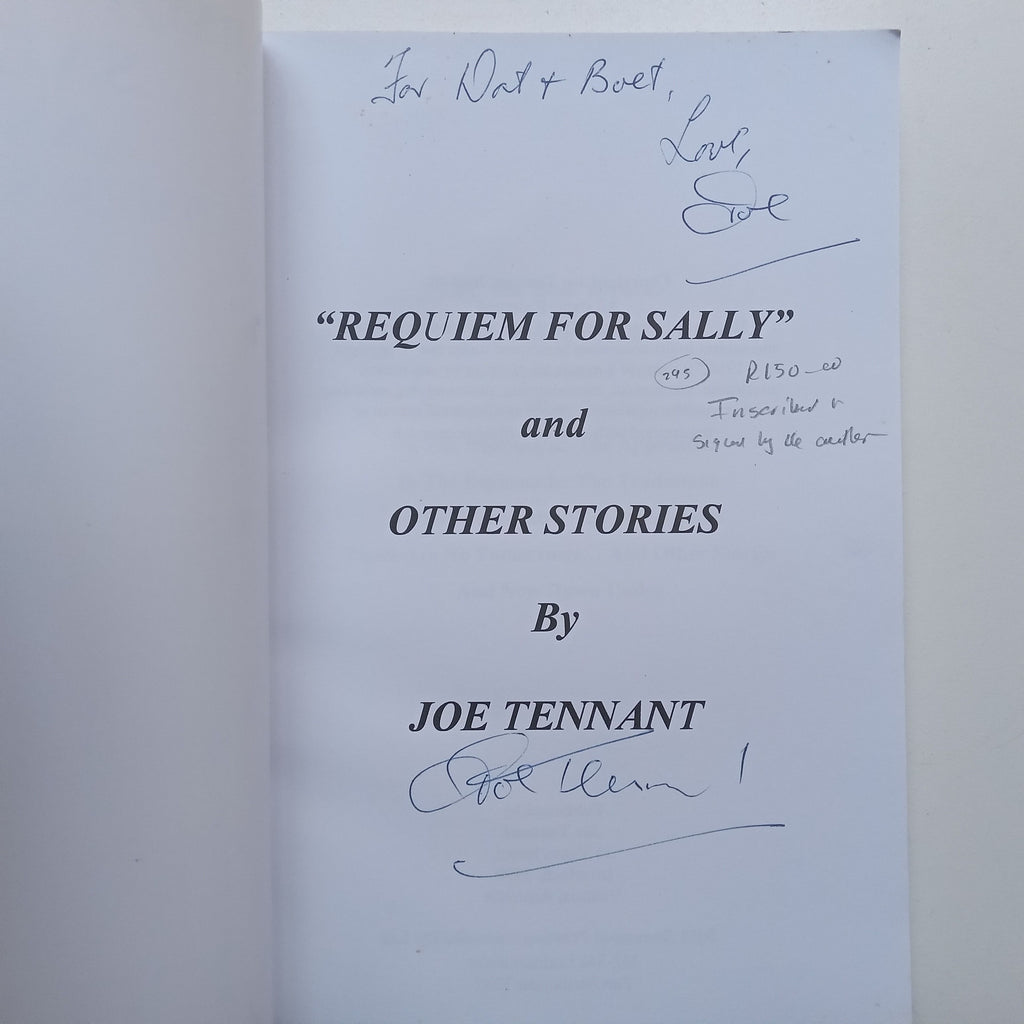 For Nat + Boet,
Love,
Joe
“REQUIEM FOR SALLY”
295 R150-00
Inscribed &
and
signed by the author
OTHER STORIES
By
JOE TENNANT
Joe Tennant